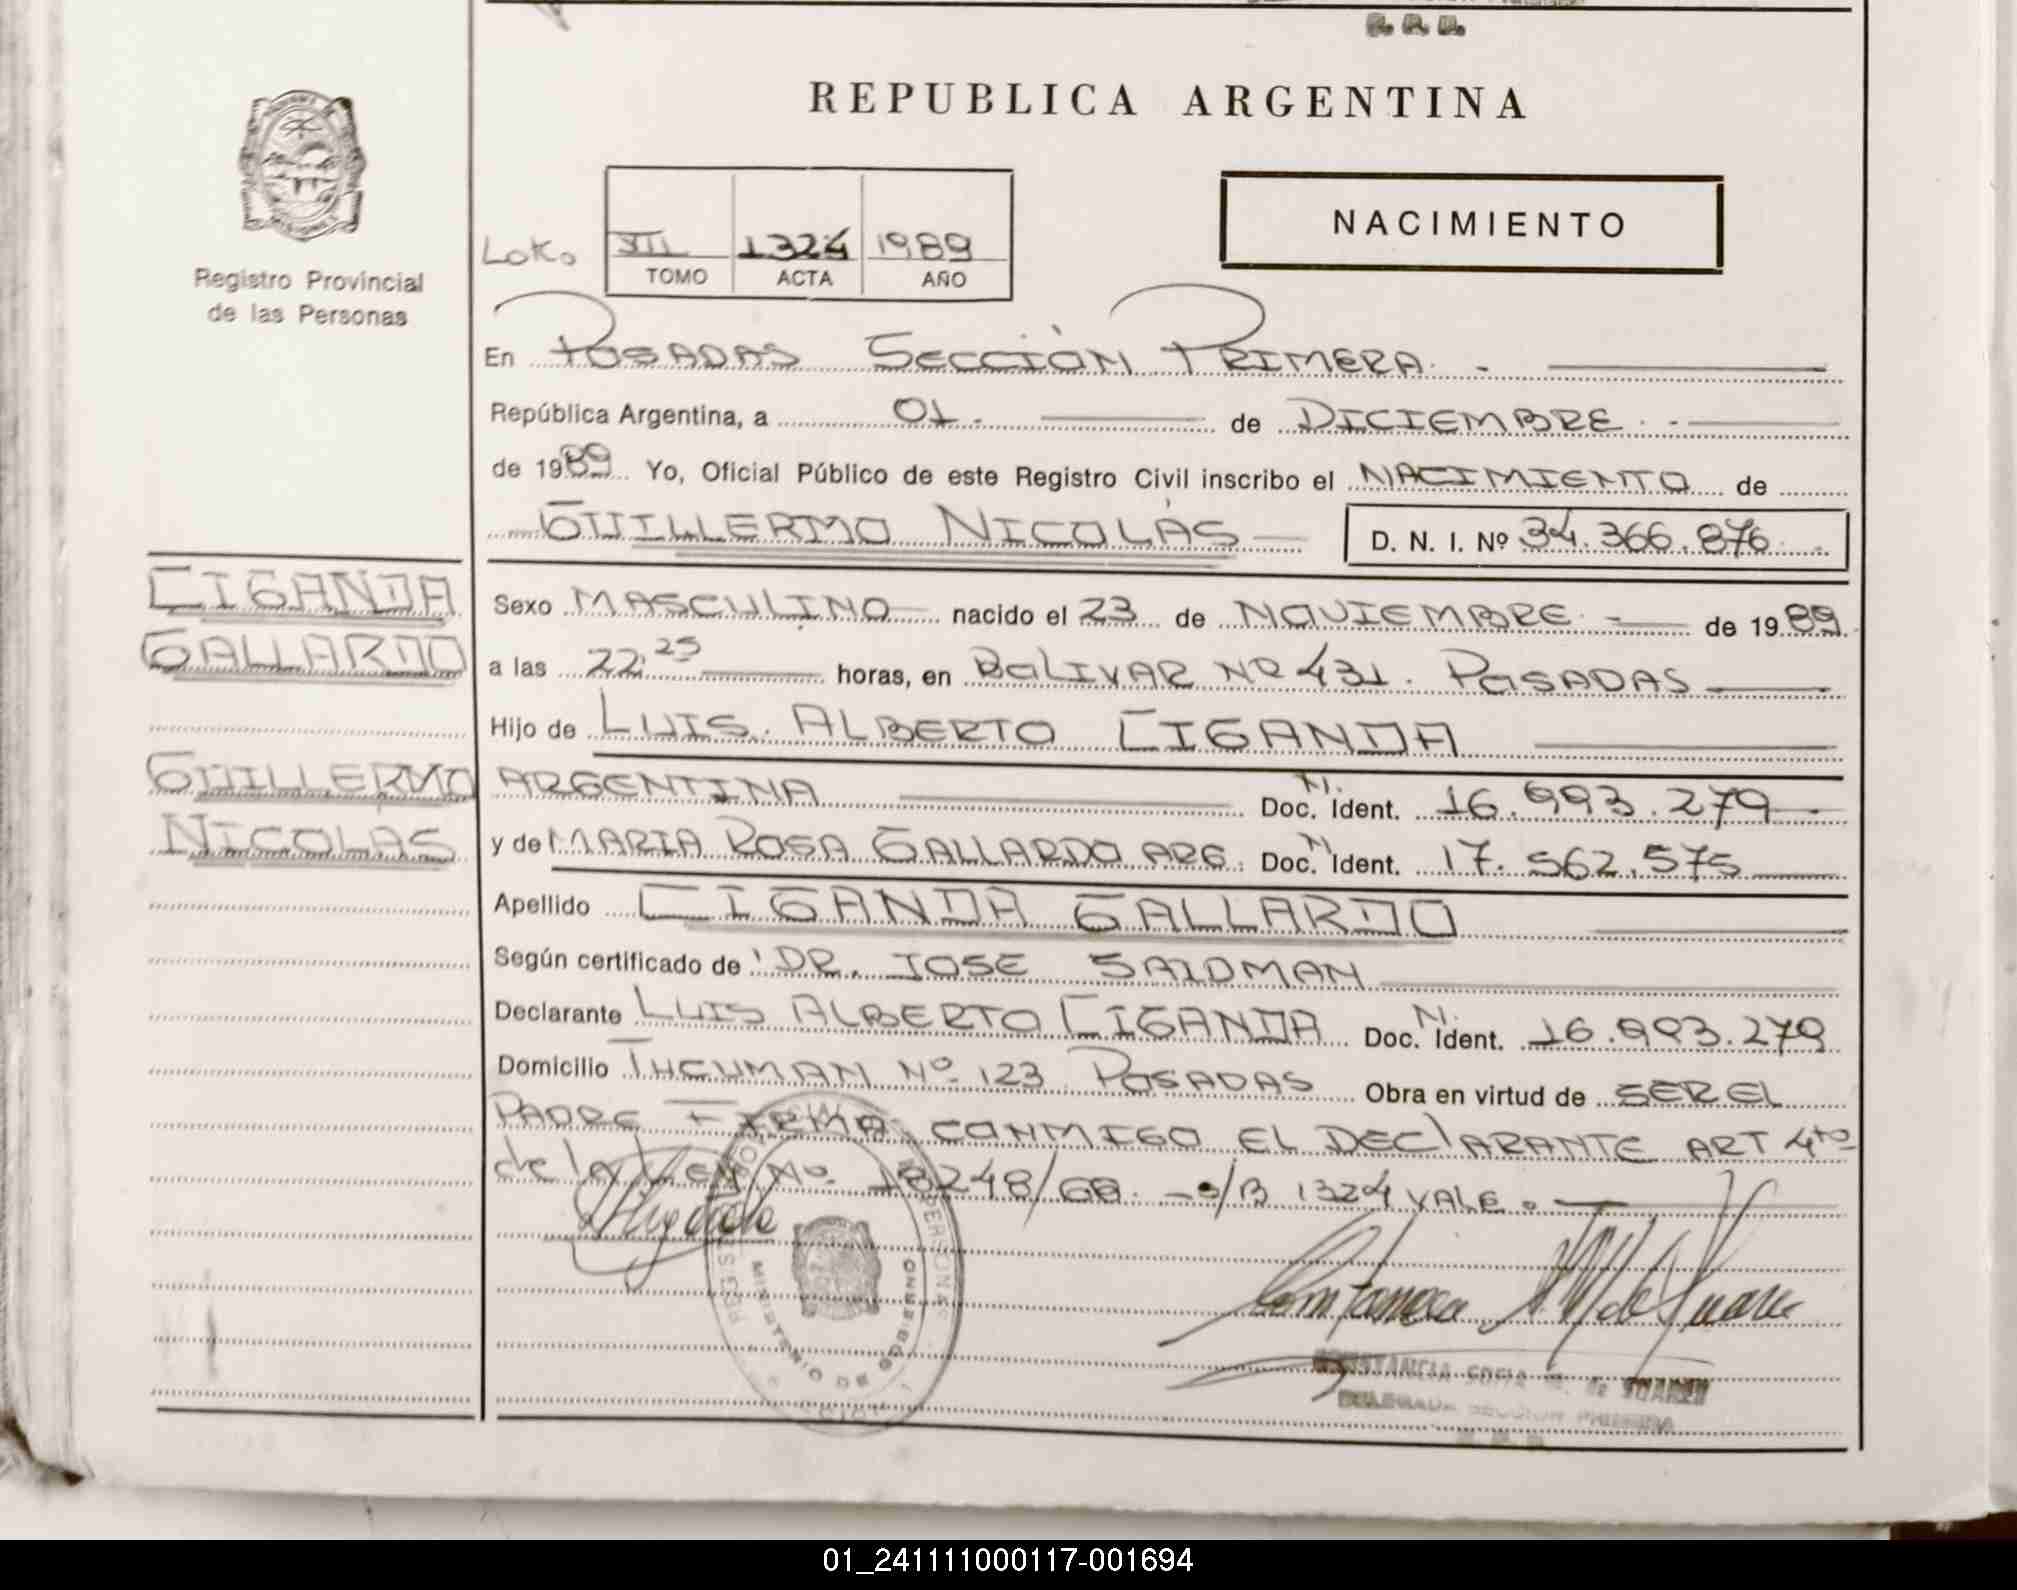 REPUBLICA ARGENTINA
NACIMIENTO
Registro Provincial
de las Personas
1324 1989
TOMO ACTA AÑO
En POSADAS SECCIÓN PRIMERA. -
República Argentina, a 01. - de DICIEMBRE. -
de 1989 Yo, Oficial Público de este Registro Civil inscribo el NACIMIENTO de
GUILLERMO NICOLÁS
D. N. I. Nº 34.366.876
CIGANDA
GALLARDO
GUILLERMO
NICOLAS
Sexo MASCULINO nacido el 23 de NOVIEMBRE. - de 1989.
a las 22,25 horas, en BOLIVAR Nº 431. POSADAS
Hijo de LUIS. ALBERTO CIGANDA
ARGENTINA Doc. N. Ident. 16.993.279
y de MARIA ROSA GALLARDO ARG. Doc. N. Ident. 17.562.575
Apellido CIGANDA GALLARDO
Según certificado de DR. JOSE SAIDMAN
Declarante LUIS ALBERTO CIGANDA Doc. N. Ident. 16.993.279
Domicilio TUCUMAN Nº 123 POSADAS Obra en virtud de SER EL
PADRE FIRMA CONMIGO EL DECLARANTE ART 4to
de la Ley Nº 18248/69. - s/B 1324 VALE. -
MINISTERIO DE GOBIERNO
CONSTANCIA SOFIA M. de SUAREZ
DELEGADA SECCION PRIMERA
01_241111000117-001694